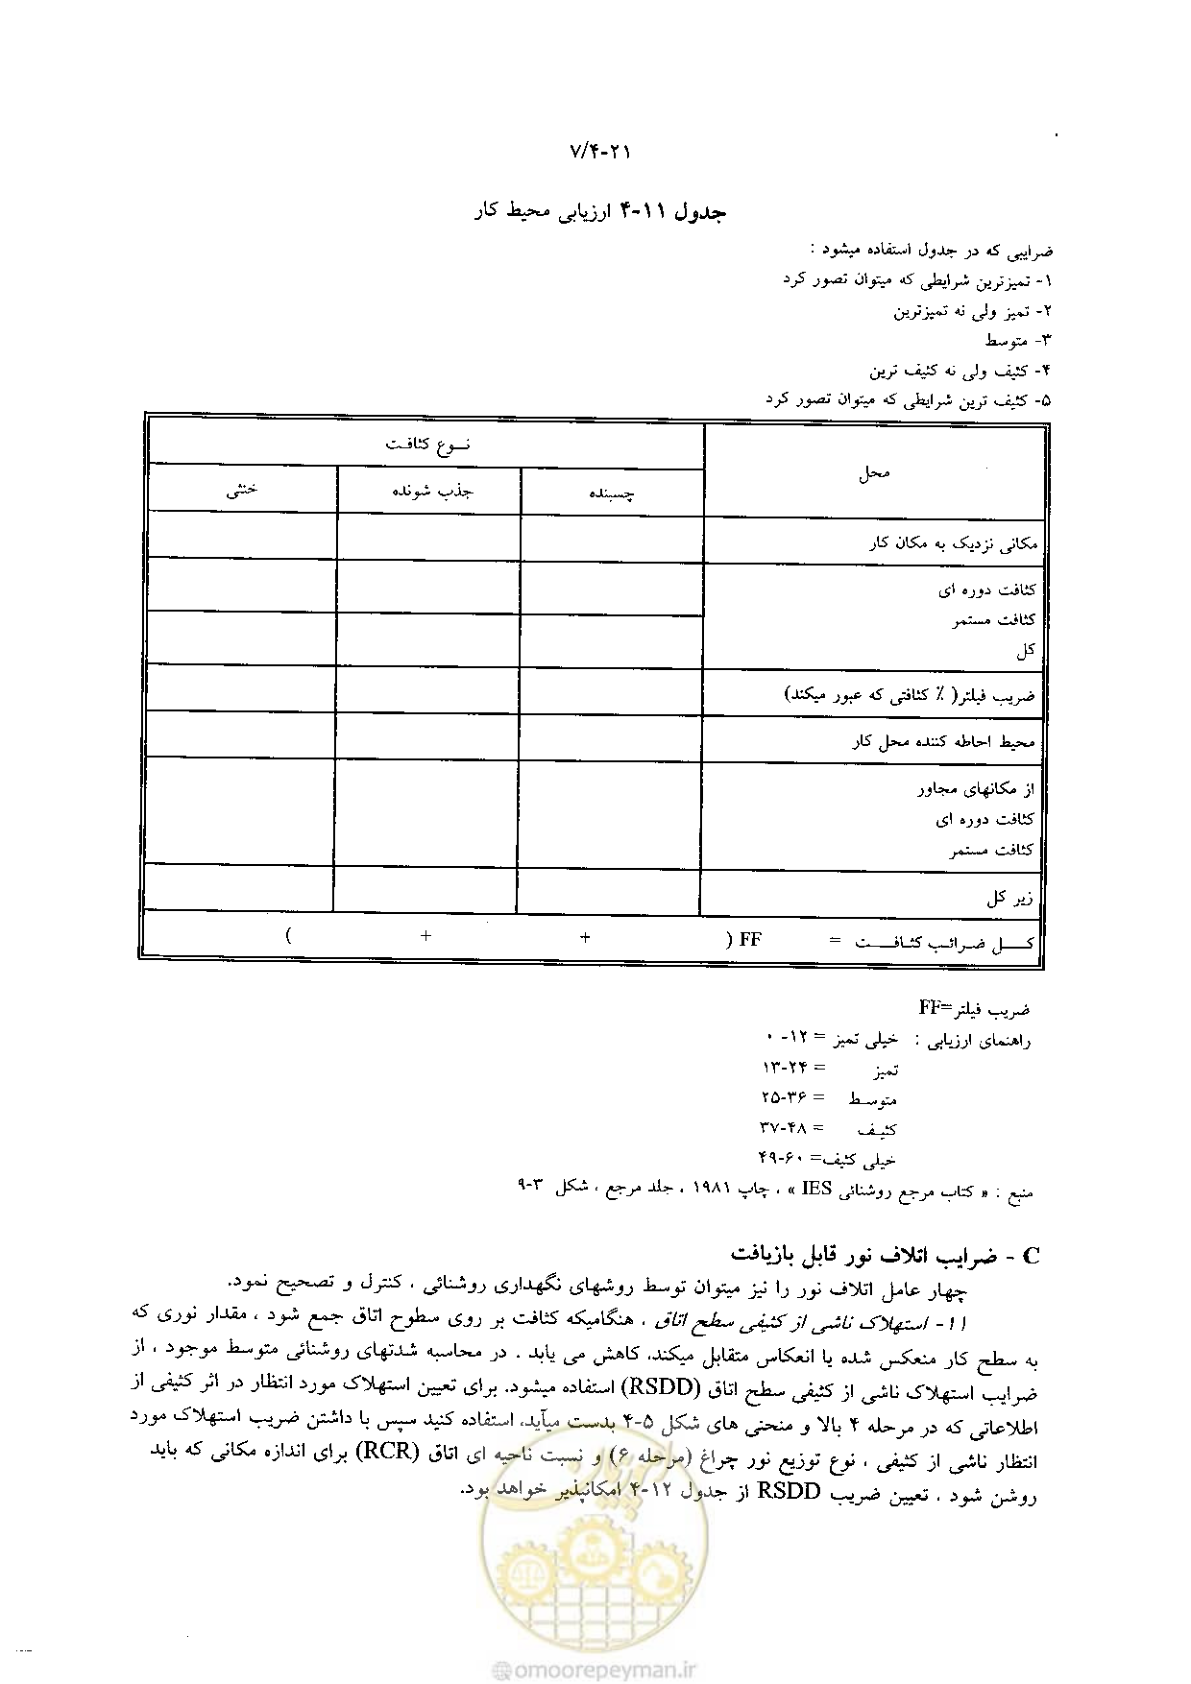 ۷/۴-۲۱
جدول ۱۱-۴ ارزیابی محیط کار
ضرایبی که در جدول استفاده میشود :
۱- تمیزترین شرایطی که میتوان تصور کرد
۲- تمیز ولی نه تمیزترین
۳- متوسط
۴- کثیف ولی نه کثیف ترین
۵- کثیف ترین شرایطی که میتوان تصور کرد
محل
نوع کثافت
چسبنده
جذب شونده
خنثی
مکانی نزدیک به مکان کار
کثافت دوره ای
کثافت مستمر
کل
ضریب فیلتر( ٪ کثافتی که عبور میکند)
محیط احاطه کننده محل کار
از مکانهای مجاور
کثافت دوره ای
کثافت مستمر
زیر کل
کل ضرائب کثافت = FF ( + + )
ضریب فیلتر=FF
راهنمای ارزیابی : خیلی تمیز = ۱۲-۰
تمیز = ۲۴-۱۳
متوسط = ۳۶-۲۵
کثیف = ۴۸-۳۷
خیلی کثیف= ۶۰-۴۹
منبع : « کتاب مرجع روشنائی IES » ، چاپ ۱۹۸۱ ، جلد مرجع ، شکل ۳-۹
C - ضرایب اتلاف نور قابل بازیافت
چهار عامل اتلاف نور را نیز میتوان توسط روشهای نگهداری روشنائی ، کنترل و تصحیح نمود.
۱۱- استهلاک ناشی از کثیفی سطح اتاق . هنگامیکه کثافت بر روی سطوح اتاق جمع شود ، مقدار نوری که
به سطح کار منعکس شده یا انعکاس متقابل میکند، کاهش می یابد . در محاسبه شدتهای روشنائی متوسط موجود ، از
ضرایب استهلاک ناشی از کثیفی سطح اتاق (RSDD) استفاده میشود. برای تعیین استهلاک مورد انتظار در اثر کثیفی از
اطلاعاتی که در مرحله ۴ بالا و منحنی های شکل ۵-۴ بدست میآید، استفاده کنید سپس با داشتن ضریب استهلاک مورد
انتظار ناشی از کثیفی ، نوع توزیع نور چراغ (مرحله ۶) و نسبت ناحیه ای اتاق (RCR) برای اندازه مکانی که باید
روشن شود ، تعیین ضریب RSDD از جدول ۱۲-۴ امکانپذیر خواهد بود.
@omoorepeyman.ir